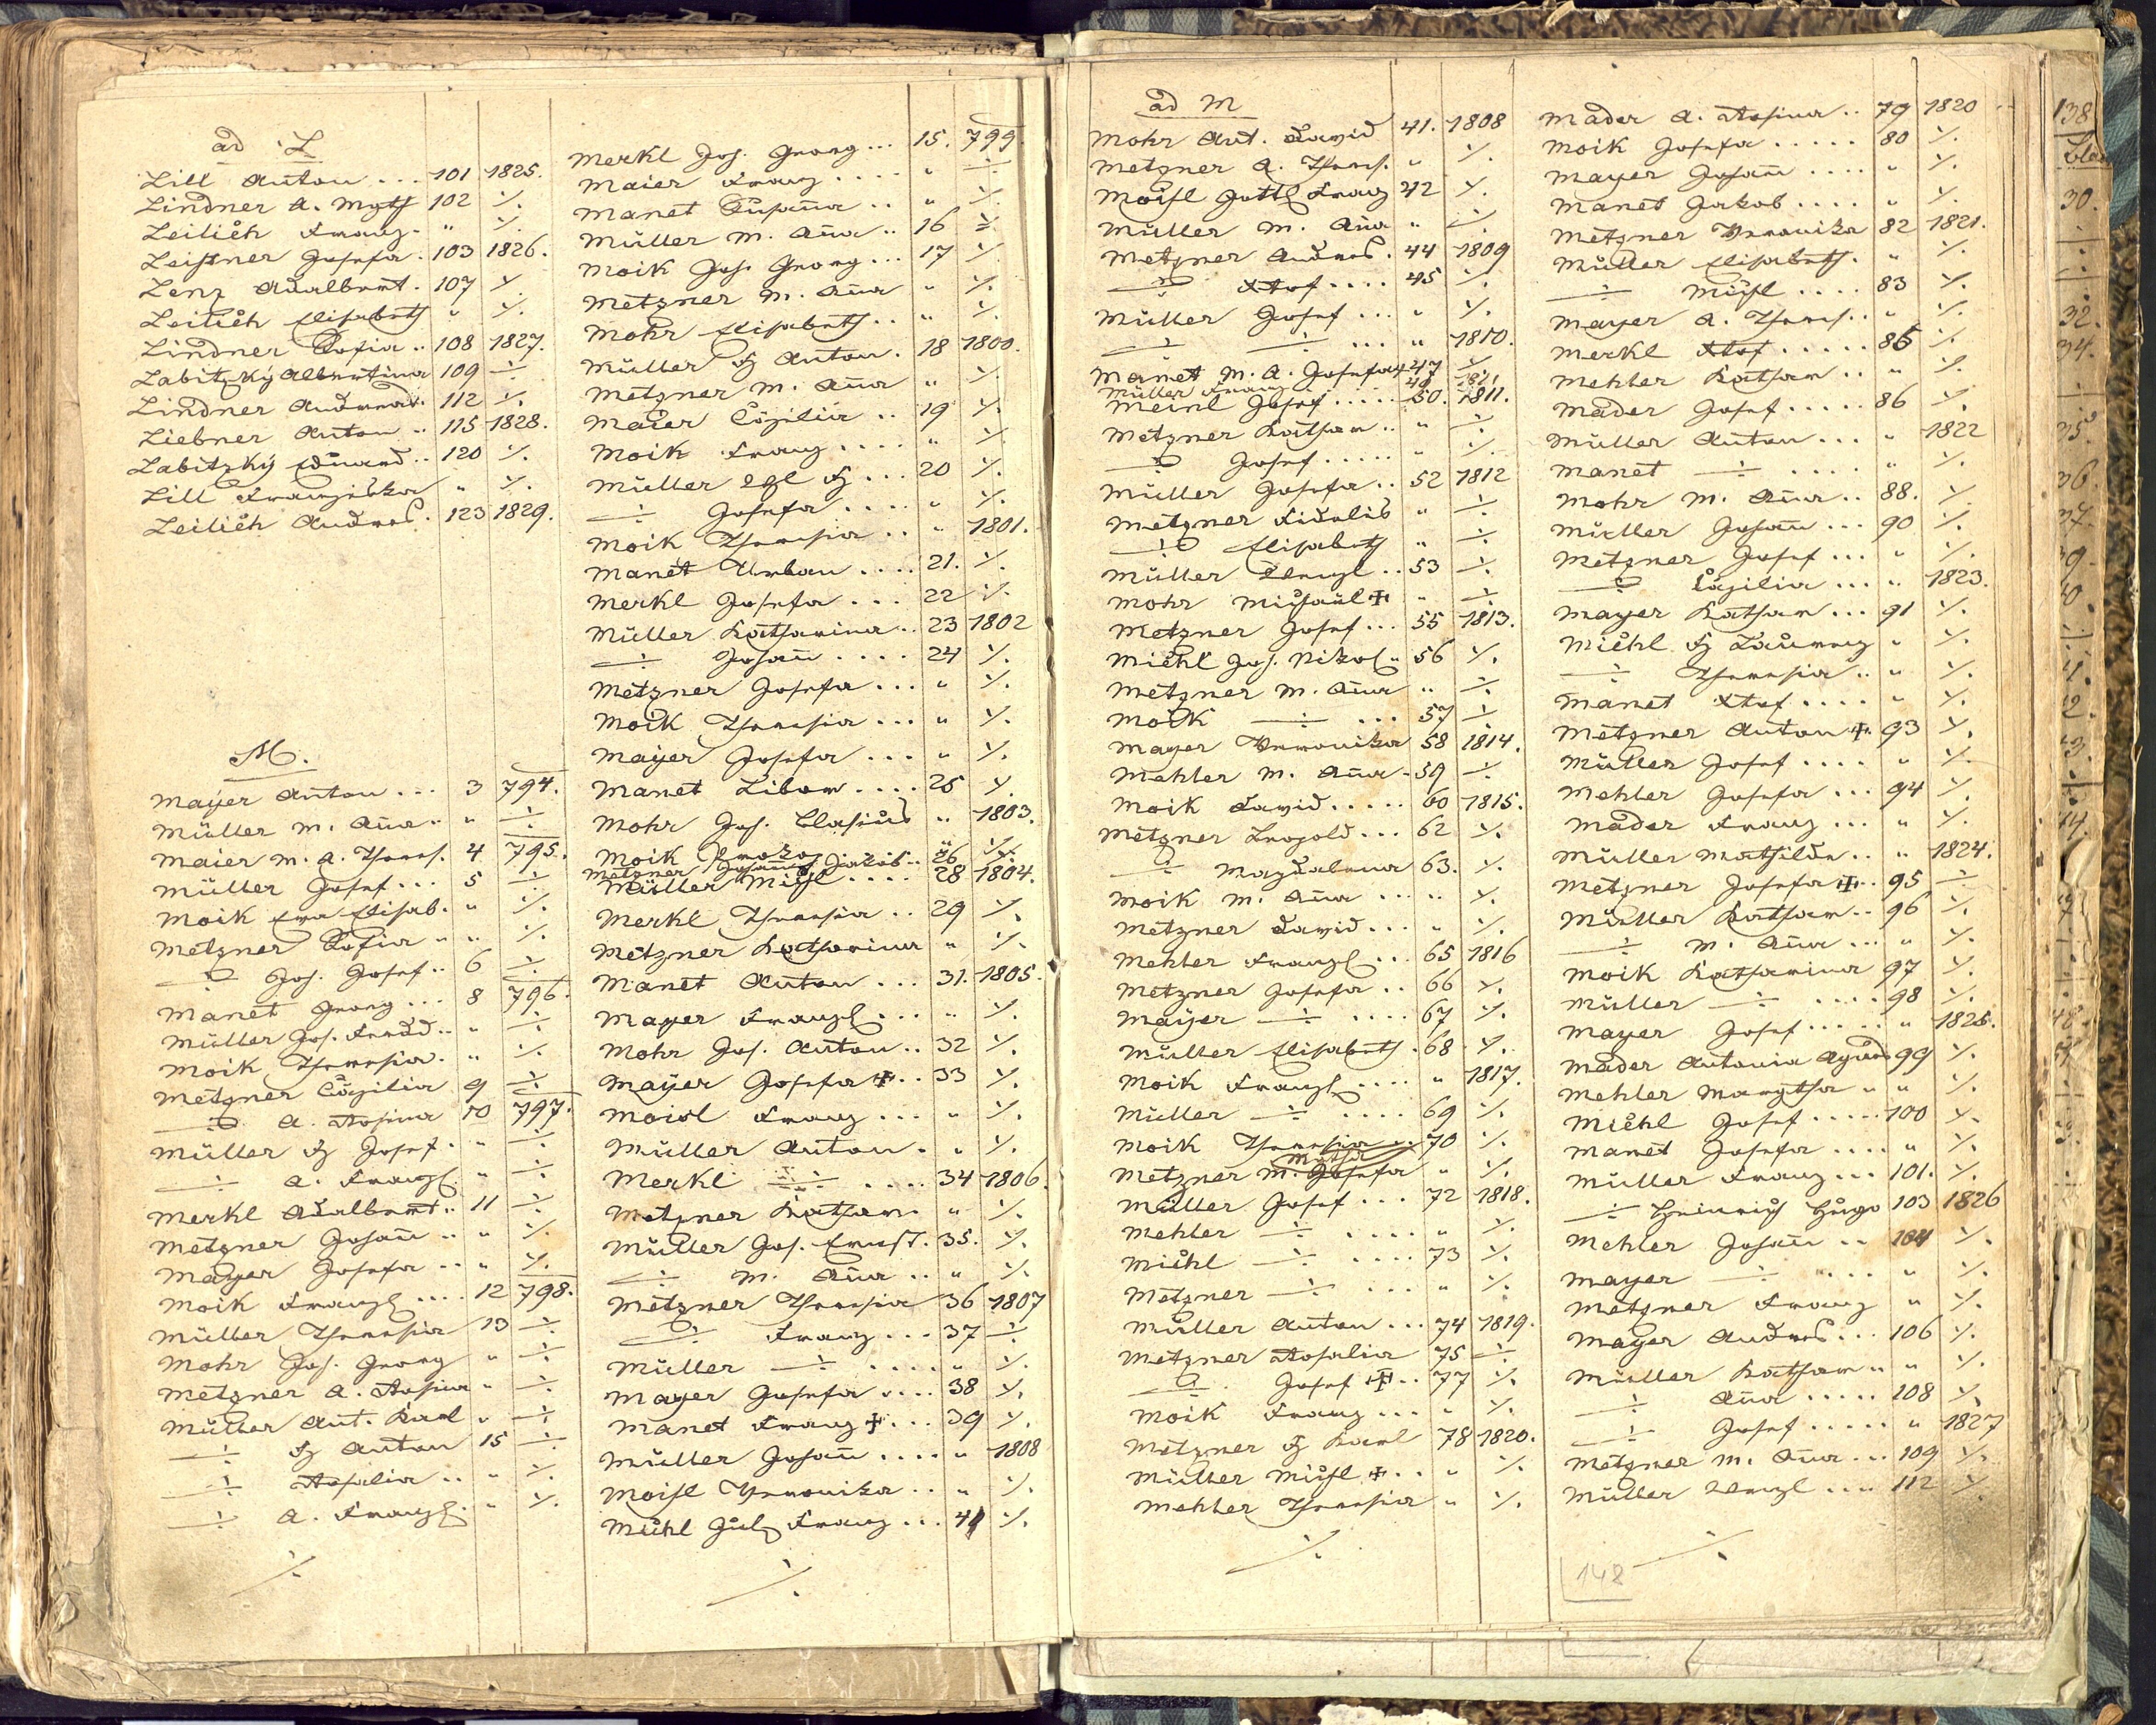 ad L
Lill Anton ... 101 1825.
Lindner A. Mgth 102 ·/.
Leilich Franz . " ·/.
Leistner Josefa . 103 1826.
Lenz Adalbert . 107 ·/.
Leilich Elisabeth " ·/.
Lindner Sofia .. 108 1827.
Labitzky Albertina 109 ÷
Lindner Andreas . 112 ·/.
Liebner Anton .. 115 1828.
Labitzky Eduard .. 120 ·/.
Lill Franziska " ·/.
Leilich Andreas . 123 1829.
M.
Mayer Anton ... 3 794.
Müller M. Ana .. " ÷
Maier M. A. Theres. 4 795.
Müller Josef ... 5 ÷
Moik Eva Elisab. " ·/.
Metzner Sofia .. " ·/.
÷ Joh. Josef .. 6 ÷
Manet Georg ... 8 796.
Müller Joh. Ferdd .. " ÷
Moik Theresia . " ·/.
Metzner Cäzilia 9 ÷
÷ A. Rosina 10 797.
Müller Fz Josef . " ÷
÷ A. Franz. " ÷
Merkl Adalbert .. 11 ÷
Metzner Johann .. " ·/.
Mayer Josefa .. " ·/.
Moik Franz .... 12 798.
Müller Theresia 13 ÷
Mohr Joh. Georg " ÷
Metzner A. Rosina " ÷
Müller Ant. Karl " ÷
÷ Fz Anton 15 ÷
÷ Rosalia .. " ·/.
÷ A. Franz. " ·/.
·/.
Merkl Joh. Georg ... 15. 799.
Maier Franz .... " ÷
Manet Susana .. " ·/.
Müller M. Ana .. 16 ÷
Moik Joh. Georg ... 17 ·/.
Metzner M. Ana " ·/.
Mohr Elisabeth .. " ·/.
Müller Fz Anton . 18 1800.
Metzner M. Ana " ·/.
Maier Cäzilia .. 19 ·/.
Moik Franz .... " ·/.
Müller Fz ... 20 ·/.
÷ Josefa .... " ·/.
Moik Theresia .. " 1801.
Manet Urban .... 21. ·/.
Merkl Josefa ... 22 ·/.
Müller Katharina .. 23 1802
÷ Johann .... 24 ·/.
Metzner Josefa ... " ·/.
Moik Theresia ... " ·/.
Mayer Josefa ... " ·/.
Manet Libor .... 25 ·/.
Mohr Joh. Blasius " 1803.
Moik Prokop " ·/.
Metzner Johann Jakob .. 26 ·/.
Müller Michl .... 28 1804.
Merkl Theresia .. 29 ·/.
Metzner Katharina " ·/.
Manet Anton ... 31. 1805.
Mayer Franz ... " ·/.
Mohr Joh. Anton .. 32 ·/.
Mayer Josefa + .. 33 ·/.
Moisl Franz ... " ·/.
Müller Anton . " ·/.
Merkl ÷ .... 34 1806.
Metzner Kathar. " ·/.
Müller Joh. Ernst . 35. ·/.
÷ M. Ana .. " ·/.
Metzner Theresia 36 1807
÷ Franz ... 37 ÷
Müller ÷ .... " ·/.
Mayer Josefa .... 38 ·/.
Manet Franz + ... 39 ·/.
Müller Johann .... " 1808
Moisl Veronika .. " ·/.
Mühl Franz ... 41 ·/.
·/.
ad M
Mohr Ant. David 41. 1808
Metzner A. Theres. " ·/.
Moisl Franz 42 ·/.
Müller M. Ana " ÷
Metzner Andreas . 44 1809
÷ .... 45 ·/.
Müller Josef ... " ·/.
÷ ÷ ... " 1810.
Manet M. A. Josefa 47 ·/.
Müller Franz 49
Meinl Josef ..... 50. 1811.
Metzner Kathar .. " ÷
÷ Josef ..... " ·/.
Müller Josefa .. 52 1812
Metzner Fidelis " ÷
÷ Elisabeth " ÷
Müller Wenzl .. 53 ÷
Mohr Michael + " ÷
Metzner Josef ... 55 1813.
Michl Joh. Nikol .. 56 ·/.
Metzner M. Ana " ÷
Moik ÷ ... 57 ÷
Mayer Veronika 58 1814.
Mehler M. Ana . 59 ÷
Moik David ..... 60 1815.
Metzner Leopold ... 62 ·/.
÷ Magdalena 63. ·/.
Moik M. Ana ... " ·/.
Metzner David ... " ·/.
Mehler Franz ... 65 1816
Metzner Josefa .. 66 ·/.
Mayer ÷ .... 67 ·/.
Müller Elisabeth . 68 ·/.
Moik Franz .... " 1817.
Müller ÷ .... 69 ·/.
Moik Theresia .. 70 ·/.
Metzner M. Josefa " ·/.
Müller Josef ... 72 1818.
Mehler ÷ .... " ·/.
Michl ÷ .... 73 ·/.
Metzner ÷ ... " ·/.
Müller Anton ... 74 1819.
Metzner Rosalia 75 ÷
÷ Josef + .. 77 ·/.
Moik Franz ... " ·/.
Metzner Fz Karl 78 1820.
Müller Michl + .. " ·/.
Mehler Theresia " ·/.
·/.
Mader A. Rosina .. 79 1820
Moik Josefa ..... 80 ·/.
Mayer Johann .... " ·/.
Manet Jakob .... " ·/.
Metzner Veronika 82 1821.
Müller Elisabeth . " ·/.
÷ Michl .... 83 ·/.
Mayer A. Theres .. " ·/.
Merkl ..... 85 ·/.
Mehler Kathar .. " ·/.
Mader Josef ..... 86 ·/.
Müller Anton ... " 1822
Manet ÷ .... " ·/.
Mohr M. Ana .. 88. ·/.
Müller Johann ... 90 ·/.
Metzner Josef ... " ·/.
÷ Cäzilia ... " 1823.
Mayer Kathar ... 91 ·/.
Michl Fz Laurenz " ·/.
÷ Theresia .. " ·/.
Manet .... " ·/.
Metzner Anton + . 93 ·/.
Müller Josef .... " ·/.
Mehler Josefa ... 94 ·/.
Mader Franz ... " ·/.
Müller Mathilde .. " 1824.
Metzner Josefa + .. 95 ÷
Müller Kathar .. 96 ·/.
÷ M. Ana ... " ·/.
Moik Katharina 97 ·/.
Müller ÷ .... 98 ·/.
Mayer Josef ..... " 1825.
Mader Antonia 99 ·/.
Mehler Margtha " " ·/.
Michl Josef ..... 100 ·/.
Manet Josefa .... " ·/.
Müller Franz ... 101. ·/.
÷ Heinrich Hugo 103 1826
Mehler Johann .. 104 ·/.
Mayer ÷ .... " ·/.
Metzner Franz " ·/.
Mayer Andreas ... 106 ·/.
Müller Kathar .. " ·/.
÷ Ana ..... 108 ·/.
÷ Josef ..... " 1827
Metzner M. Ana ... 109 ·/.
Müller Wenzl .... 112 ·/.
·/.
148
138
30.
32.
34.